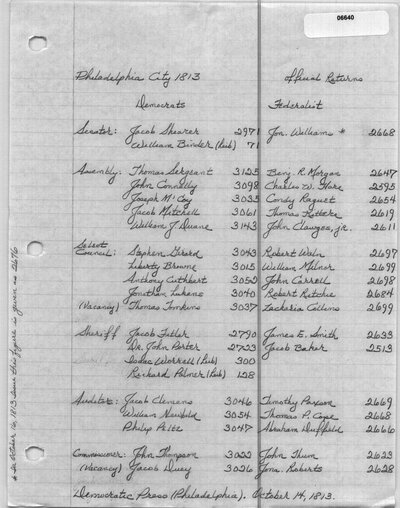 06640
Philadelphia City 1813 Official Returns
Democrats Federalist
Senator: Jacob Shearer 2971 Jon. Williams * 2668
William Binder (Pub) 71
Assembly: Thomas Sergeant 3125 Benj. R. Morgan 2647
John Connelly 3098 Charles W. Hare 2595
Joseph M'Coy 3035 Condy Raguet 2654
Jacob Mitchell 3061 Thomas 2619
William J. Duane 3143 John Clawges, jr. 2611
Select
Council: Stephen Girard 3043 Robert Waln 2697
Liberty Browne 3015 William Milnor 2699
Anthony Cuthbert 3052 John Carrell 2698
Jonathan Lukens 3040 Robert Ritchie 2684
(Vacancy) Thomas Tomkins 3037 Zacheria Collins 2699
Sheriff Jacob Fitler 2790 James E. Smith 2633
Dr. John Porter 2723 Jacob Baker 2513
Isaac Worrell (Pub) 300
Richard Palmer (Pub) 128
Auditor: Jacob Clemens 3046 Timothy Paxson 2669
William Newbold 3054 Thomas P. Cope 2668
Philip Peltz 3047 Abraham Duffield 2666
Commissioner: John Thompson 3022 John Thum 2623
(Vacancy) Jacob Huey 3026 Jona. Roberts 2628
Democratic Press (Philadelphia). October 14, 1813.
* In October 16, 1813 issue this figure is given as 2676